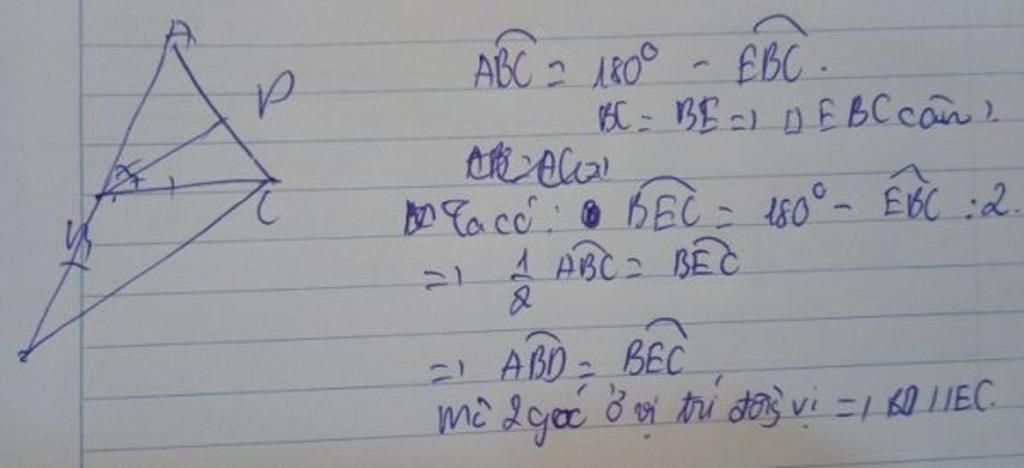 A
D
C
ABC = 180° - EBC.
BC = BE => Δ EBC cân
Ta có: BEC = 180° - EBC : 2.
=> 1/2 ABC = BEC
=> ABD = BEC
mà 2 góc ở vị trí đồng vị => BD // EC.